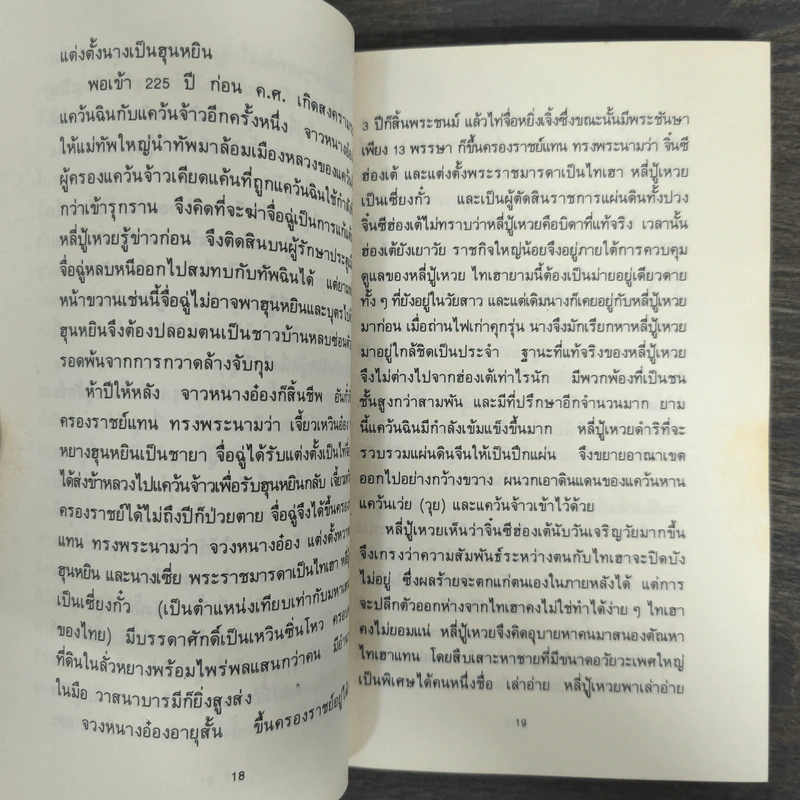 แต่งตั้งนางเป็นฮุนหยิน
พอเข้า 225 ปี ก่อน ค.ศ. เกิดสงคราม
แคว้นฉินกับแคว้นจ้าวอีกครั้งหนึ่ง จาวหนางอ๋อง
ให้แม่ทัพใหญ่นำทัพมาล้อมเมืองหลวงของแคว้น
ผู้ครองแคว้นจ้าวเคียดแค้นที่ถูกแคว้นฉินใช้กำลัง
กว่าเข้ารุกราน จึงคิดที่จะฆ่าจื่อฉู่เป็นการแก้แค้น
หลี่ปู้เหวยรู้ข่าวก่อน จึงติดสินบนผู้รักษาประตู
จื่อฉู่หลบหนีออกไปสมทบกับทัพฉินได้ แต่ยาม
หน้าขวานเช่นนี้จื่อฉู่ไม่อาจพาฮุนหยินและบุตรไป
ฮุนหยินจึงต้องปลอมตนเป็นชาวบ้านหลบซ่อน
รอดพ้นจากการกวาดล้างจับกุม
ห้าปีให้หลัง จาวหนางอ๋องก็สิ้นชีพ อันกั๋ว
ครองราชย์แทน ทรงพระนามว่า เจี้ยวเหวินอ๋อง
หยางฮุนหยินเป็นชายา จื่อฉู่ได้รับแต่งตั้งเป็นไท่จื่อ
ได้ส่งข้าหลวงไปแคว้นจ้าวเพื่อรับฮุนหยินกลับ เจี้ยวเหวิน
ครองราชย์ได้ไม่ถึงปีก็ป่วยตาย จื่อฉู่จึงได้ขึ้นครอง
แทน ทรงพระนามว่า จวงหนางอ๋อง แต่งตั้งหวา
ฮุนหยิน และนางเซี่ย พระราชมารดาเป็นไทเฮา หลี่ปู้
เป็นเซี่ยงกั๋ว (เป็นตำแหน่งเทียบเท่ากับมหาเสนา
ของไทย) มีบรรดาศักดิ์เป็นเหวินซิ่นโหว ครอบ
ที่ดินในลั่วหยางพร้อมไพร่พลแสนกว่าคน มีอำนาจ
ในมือ วาสนาบารมีก็ยิ่งสูงส่ง
จวงหนางอ๋องอายุสั้น ขึ้นครองราชย์อยู่ได้
18
3 ปีก็สิ้นพระชนม์ แล้วไท่จื่อหยิ่งเจิ้งซึ่งขณะนั้นมีพระชันษา
เพียง 13 พรรษา ก็ขึ้นครองราชย์แทน ทรงพระนามว่า จิ๋นซี
ฮ่องเต้ และแต่งตั้งพระราชมารดาเป็นไทเฮา หลี่ปู้เหวย
เป็นเซี่ยงกั๋ว และเป็นผู้ตัดสินราชการแผ่นดินทั้งปวง
จิ๋นซีฮ่องเต้ไม่ทราบว่าหลี่ปู้เหวยคือบิดาที่แท้จริง เวลานั้น
ฮ่องเต้ยังเยาวัย ราชกิจใหญ่น้อยจึงอยู่ภายใต้การควบคุม
ดูแลของหลี่ปู้เหวย ไทเฮายามนี้ต้องเป็นม่ายอยู่เดียวดาย
ทั้ง ๆ ที่ยังอยู่ในวัยสาว และแต่เดิมนางก็เคยอยู่กับหลี่ปู้เหวย
มาก่อน เมื่อถ่านไฟเก่าคุกรุ่น นางจึงมักเรียกหาหลี่ปู้เหวย
มาอยู่ใกล้ชิดเป็นประจำ ฐานะที่แท้จริงของหลี่ปู้เหวย
จึงไม่ต่างไปจากฮ่องเต้เท่าไรนัก มีพวกพ้องที่เป็นชน
ชั้นสูงกว่าสามพัน และมีที่ปรึกษาอีกจำนวนมาก ยาม
นี้แคว้นฉินมีกำลังเข้มแข็งขึ้นมาก หลี่ปู้เหวยดำริที่จะ
รวบรวมแผ่นดินจีนให้เป็นปึกแผ่น จึงขยายอาณาเขต
ออกไปอย่างกว้างขวาง ผนวกเอาดินแดนของแคว้นหาน
แคว้นเว่ย (วุย) และแคว้นจ้าวเข้าไว้ด้วย
หลี่ปู้เหวยเห็นว่าจิ๋นซีฮ่องเต้นับวันเจริญวัยมากขึ้น
จึงเกรงว่าความสัมพันธ์ระหว่างตนกับไทเฮาจะปิดบัง
ไม่อยู่ ซึ่งผลร้ายจะตกแก่ตนเองในภายหลังได้ แต่การ
จะปลีกตัวออกห่างจากไทเฮาคงไม่ใช่ทำได้ง่าย ๆ ไทเฮา
คงไม่ยอมแน่ หลี่ปู้เหวยจึงคิดอุบายหาคนมาสนองตัณหา
ไทเฮาแทน โดยสืบเสาะหาชายที่มีขนาดอวัยวะเพศใหญ่
เป็นพิเศษได้คนหนึ่งชื่อ เล่าอ่าย หลี่ปู้เหวยพาเล่าอ่าย
19